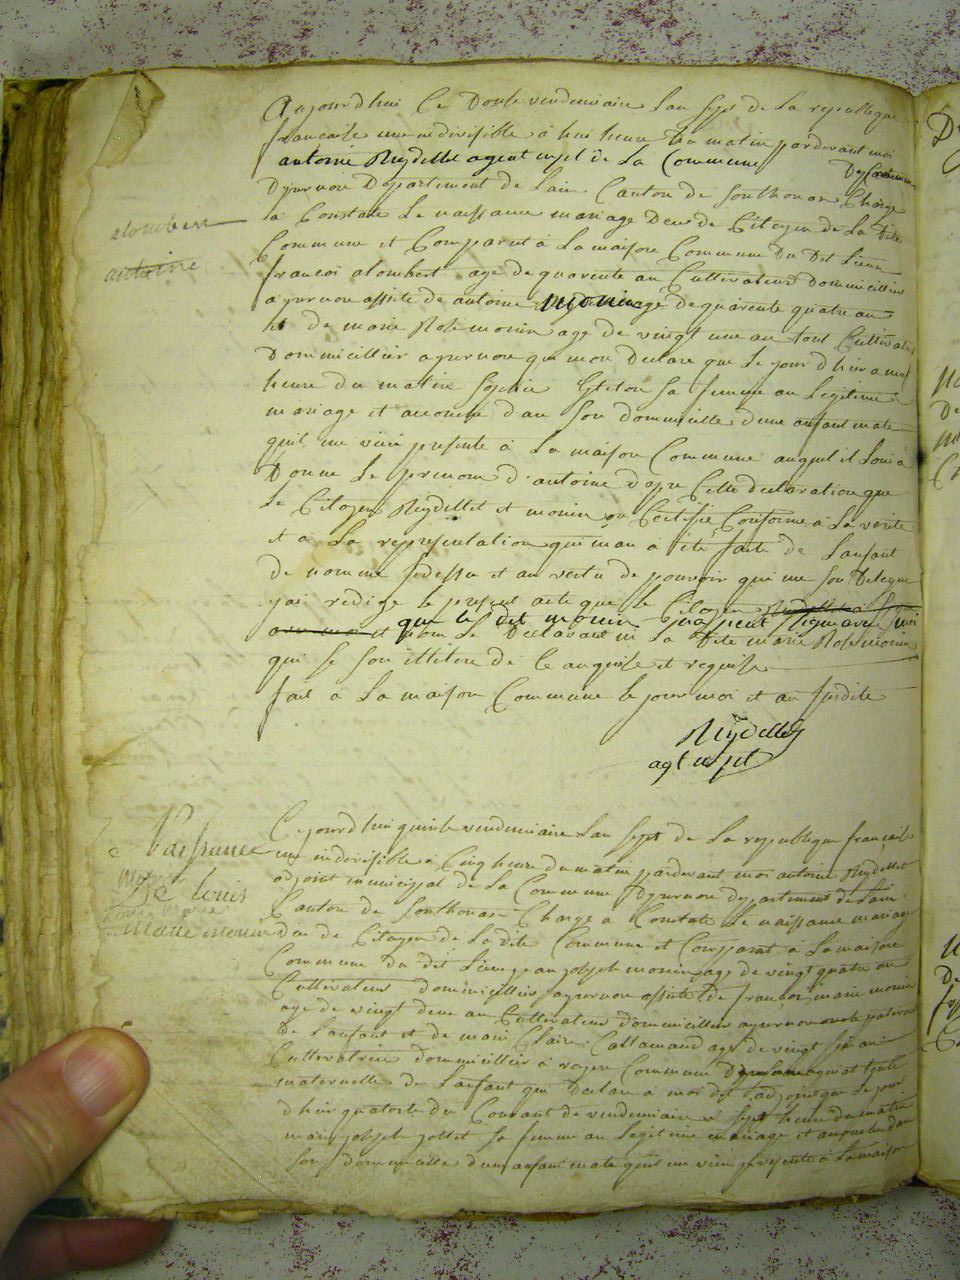 Aujourd'hui Ce Douse vendemiaire L'an Sept de La republique
francaise une indivisible à huit heure du matin pardevant moi
antoine Reydellet agent mpl de La Commune
Dyzernore Departement de Lain Canton de Sonthonax Charge
a Constate Le naissance mariage Deces de Citoyen de La Dite
Commune et Comparut à La maison Commune Du Dit Lieux
francoi alombert age de quarente an Cultivateur Dommicillier
a yzernore assite de antoine monin age de quarente quatre an
et de marie Rose monin age de vingt une an tout Cultivateur
Dommicillier a yzernore qui mon Declare que Le jour d'hier a neuf
heure du matin Sophie sa femme an Legitime
mariage et accouche dan Son dommicille d'une anfant male
qu'il me vien presente à La maison Commune auquel il Loui à
Donne Le prenom d'antoine d'apre Cette declaration que
Le Citoyen Reydellet et monin on Certifié Conforme à La verite
et à La representation qui man à été faite de L'anfant
de nomme sudessu et au vertu de pouvoir qui me Son Delegue
j'ai redige le present acte que le Citoyen
que le dit monin signe avec moi
et non Le Declarant ni La Dite marie Rose monin
qui se Son illitere de ce anquise et requise
fait à La maison Commune le jour moi et an susdite
Reydellet
agt mpl
alombert
antoine
Naissance
de louis
marie monin
Cejourd'hui quinse vendemiaire L'an Sept de La republique francaise
une indivisible à Cinq heure du matin pardevant moi antoine Reydellet
adjoint municipal de La Commune Dyzernore departement de Lain
Canton de Sonthonax Charge à Constate Le naissance mariage
Du de Citoyen de La dite Commune et Comparut à La maison
Commune Du Dit Lieux jean josph monin age de vingt quatre an
Cultivateur dommicillier a yzernore assite de francoi marie monin
age de vingt deux an Cultivateur dommicillier a yzernore oncle paternel
De L'anfant et de marie Claire Callamand age de vingt sept an
Cultivatrice dommicillier à Commune
maternelle de L'anfant qui Declare à moi dit adjoint que Le jour
d'hier quatorse du Courant de vendemiaire a Sept heure du matin
marie josph sa femme an Legitime mariage et accouche dan
Son dommicille d'un anfant male qu'il me vien presente à La maison